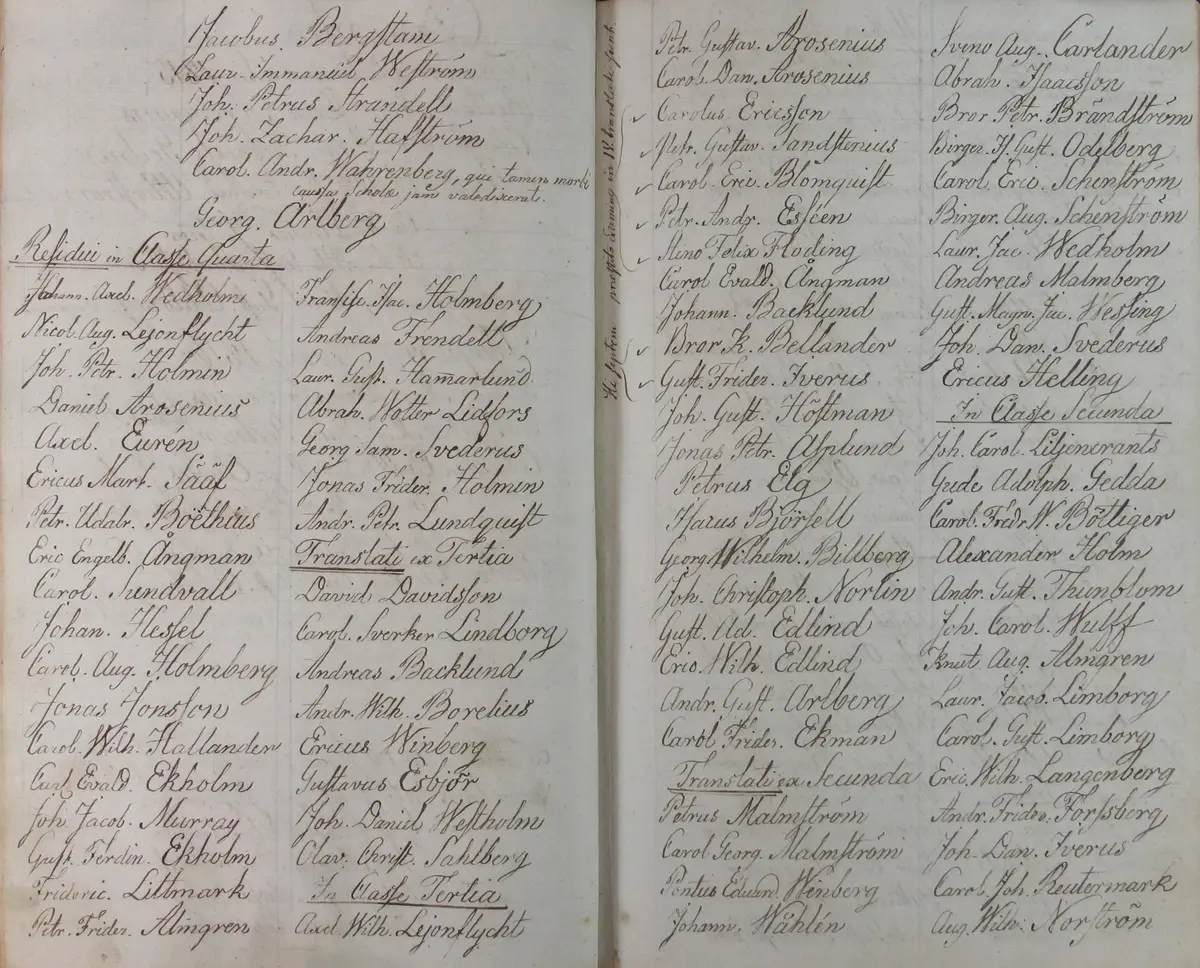 Jacobus. Bergstam
Laur. Immanuel Weström
Joh. Petrus Arandell
Joh. Zachar. Hafström
Carol. Andr. Wahrenberg, qui tamen morbi
caussa Scholæ jam valedixerat.
Georg. Arlberg
Residui in Classe Quarta
Joham. Axel. Wedholm
Nicol. Aug. Lejonflycht
Joh. Petr. Holmin
Daniel Arosenius
Axel. Eurén
Ericus Mart. Sääf
Petr. Udalr. Boëthius
Eric Engelb. Ångman
Carol. Sundvall
Johan. Hessel
Carol. Aug. Holmberg
Jonas Jonsson
Carol. Wilh. Hallander
Carl Ewald. Ekholm
Joh. Jacob. Murray
Gust. Ferdin. Ekholm
Frideric. Littmark
Petr. Frider. Almgren
Fransisc. Isac. Holmberg
Andreas Frendell
Laur. Gust. Hamarlund
Abrah. Wolter Lidfors
Georg Sam. Svederus
Jonas Frider. Holmin
Andr. Petr. Lundquist
Translati ex Tertia
David Davidsson
Carol. Sverker Lindborg
Andreas Backlund
Andr. Wilh. Borelius
Ericus Winberg
Gustavus Esbjör
Joh. Daniel Westholm
Olav. Christ. Sahlberg
In Classe Tertia
Axel Wilh. Lejonflycht
Petr. Gustav. Arosenius
Carol. Dan. Arosenius
Carolus Ericsson
Petr. Gustav. Sandstenius
Carol. Eric. Blomquist
Petr. Andr. Esséen
Steno Felix Floding
Carol Evald. Ångman
Johann. Backlund
Bror K. Bellander
Gust. Frider. Iverus
Joh. Gust. Höstman
Jonas Petr. Asplund
Petrus Elg
Isacus Björsell
Georg Wilhelm. Billberg
Joh. Christoph. Norlin
Gust. Ad. Edlind
Eric. Wilh. Edlind
Andr. Gust. Arlberg
Carol Frider. Ekman
Translati ex Secunda
Petrus Malmström
Carol Georg. Malmström
Pontus Eduard. Winberg
Johann. Wåhlén
Sveno Aug. Carlander
Abrah. Isaacsson
Bror Petr. Brandström
Birger. H. Gust. Odelberg
Carol Eric. Schenström
Birger. Aug. Schenström
Laur. Jac. Wedholm
Andreas Malmberg
Gust. Magn. Jac. Wessing
Joh. Dan. Svederus
Ericus Helling
In Classe Secunda
Joh. Carol. Liljencrants
Gude Adolph. Gedda
Carol. Fredr. W. Böttiger
Alexander Holm
Andr. Gust. Thunblom
Joh. Carol. Wulff
Knut. Aug. Almgren
Laur. Jacob. Limborg
Carol. Gust. Limborg
Eric. Wilh. Langenberg
Andr. Frider. Forssberg
Joh. Dan. Iverus
Carol. Joh. Reutermark
Aug. Wilh. Norström